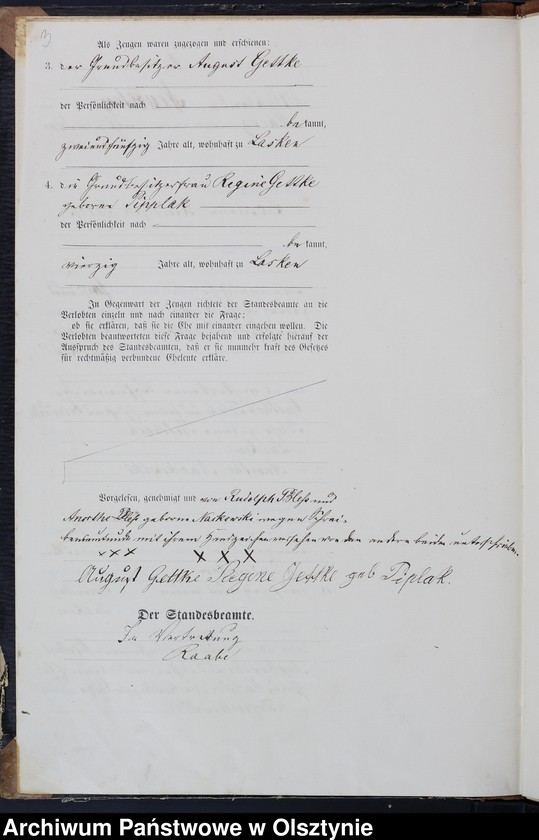 3
Als Zeugen waren zugezogen und erschienen:
3. der Grundbesitzer August Gettke
der Persönlichkeit nach
be kannt,
zweiundfünfzig Jahre alt, wohnhaft zu Lasken
4. die Grundbesitzerfrau Regine Gettke
geborne Pipplak
der Persönlichkeit nach
be kannt,
vierzig Jahre alt, wohnhaft zu Lasken
In Gegenwart der Zeugen richtete der Standesbeamte an die
Verlobten einzeln und nach einander die Frage:
ob sie erklären, daß sie die Ehe mit einander eingehen wollen. Die
Verlobten beantworteten diese Frage bejahend und erfolgte hierauf der
Ausspruch des Standesbeamten, daß er sie nunmehr kraft des Gesetzes
für rechtmäßig verbundene Eheleute erkläre.
Vorgelesen, genehmigt und von Rudolph Bless und
Anorthe Bless geborne Naskowski wegen Schrei-
bensunkunde mit ihrem Handzeichen versehen von den andern beiden unterschrieben.
xxx XXX
August Gettke Regene Jettke geb Piplak.
Der Standesbeamte.
In Vertretung
Raabe
Archiwum Państwowe w Olsztynie